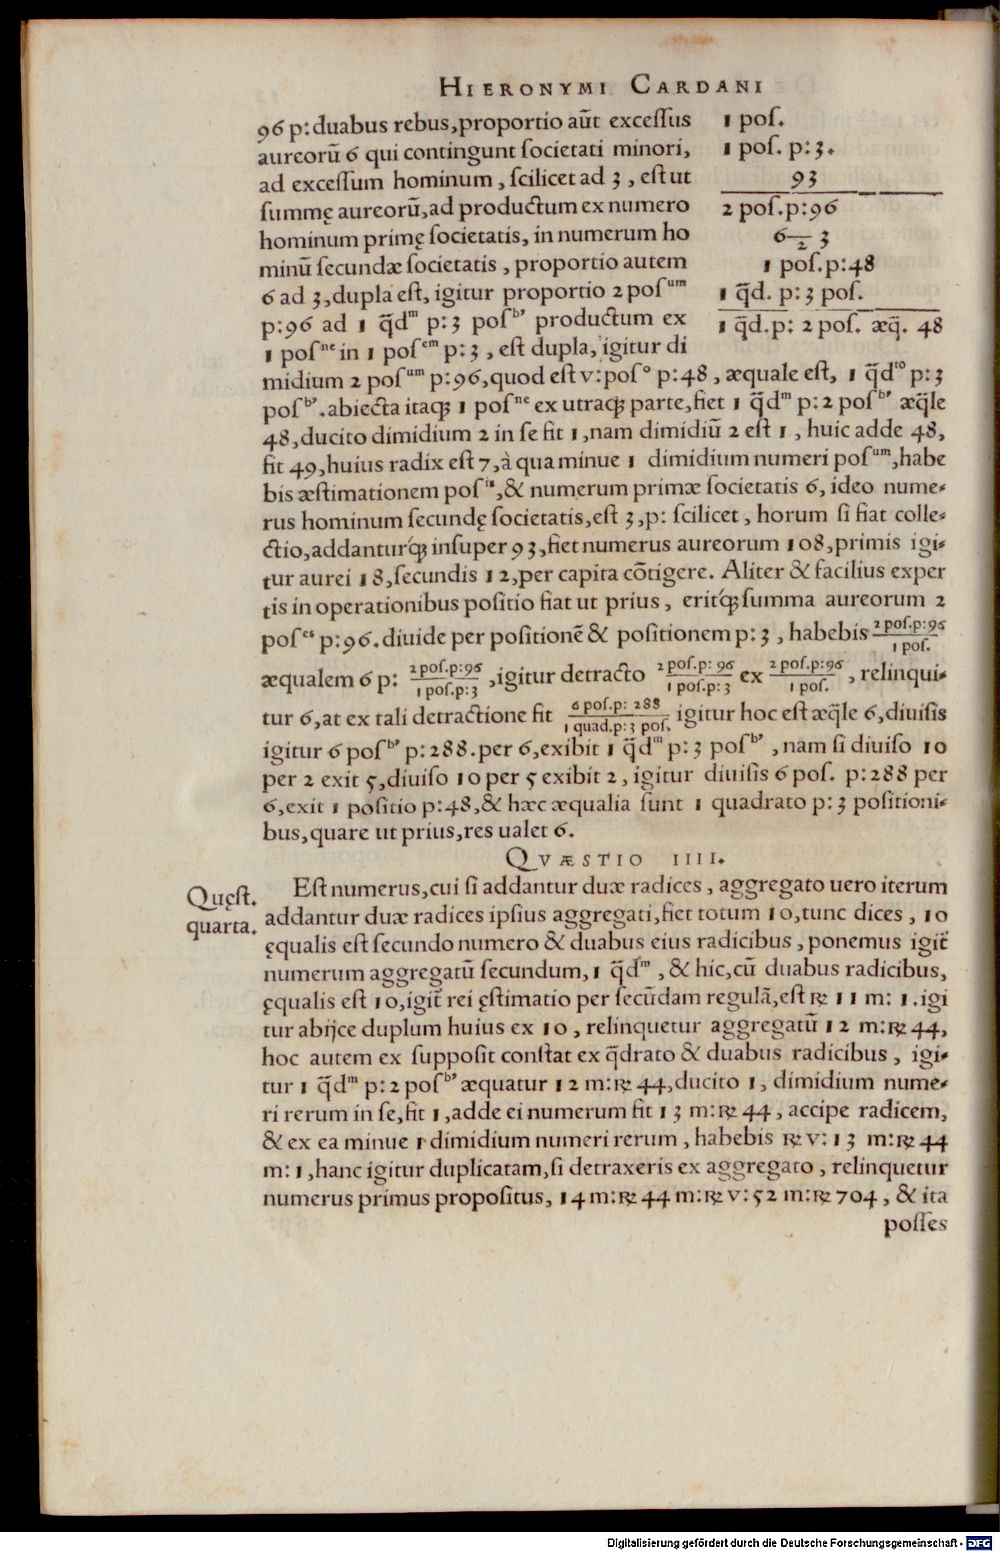 HIERONYMI CARDANI
96 p: duabus rebus, proportio aũt excessus
aureorũ 6 qui contingunt societati minori,
ad excessum hominum, scilicet ad 3, est ut
summę aureorũ, ad productum ex numero
hominum primę societatis, in numerum ho
minũ secundæ societatis, proportio autem
6 ad 3, dupla est, igitur proportio 2 posᵘᵐ
p: 96 ad 1 q̃dᵐ p: 3 posᵇ’ productum ex
1 posⁿᵉ in 1 posᵉᵐ p: 3, est dupla, igitur di
1 pos.
1 pos. p: 3.
93
2 pos. p: 96
6 — 3
2
1 pos. p: 48
1 q̃d. p: 3 pos.
1 q̃d. p: 2 pos. æq̃. 48
midium 2 posᵘᵐ p: 96, quod est v: posᵒ p: 48, æquale est, 1 q̃dᵗᵒ p: 3
posᵇ’. abiecta itaq; 1 posⁿᵉ ex utraq; parte, fiet 1 q̃dᵐ p: 2 posᵇ’ æq̃le
48, ducito dimidium 2 in se fit 1, nam dimidiũ 2 est 1, huic adde 48,
fit 49, huius radix est 7, à qua minue 1 dimidium numeri posᵘᵐ, habe
bis æstimationem posⁱˢ, & numerum primæ societatis 6, ideo nume-
rus hominum secundę societatis, est 3, p: scilicet, horum si fiat colle-
ctio, addanturq́; insuper 93, fiet numerus aureorum 108, primis igi-
tur aurei 18, secundis 12, per capita cõtigere. Aliter & facilius exper
tis in operationibus positio fiat ut prius, eritq́; summa aureorum 2
posᵉˢ p: 96. diuide per positionẽ & positionem p: 3, habebis 2 pos. p: 96 / 1 pos.
æqualem 6 p: 2 pos. p: 96 / 1 pos. p: 3, igitur detracto 2 pos. p: 96 / 1 pos. p: 3 ex 2 pos. p: 96 / 1 pos., relinqui-
tur 6, at ex tali detractione fit 6 pos. p: 288 / 1 quad. p: 3 pos. igitur hoc est æq̃le 6, diuisis
igitur 6 posᵇ’ p: 288. per 6, exibit 1 q̃dᵐ p: 3 posᵇ’, nam si diuiso 10
per 2 exit 5, diuiso 10 per 5 exibit 2, igitur diuisis 6 pos. p: 288 per
6, exit 1 positio p: 48, & hæc æqualia sunt 1 quadrato p: 3 positioni-
bus, quare ut prius, res ualet 6.
QVÆSTIO IIII.
Quęst.
quarta.
Est numerus, cui si addantur duæ radices, aggregato uero iterum
addantur duæ radices ipsius aggregati, fiet totum 10, tunc dices, 10
ęqualis est secundo numero & duabus eius radicibus, ponemus igit̃
numerum aggregatũ secundum, 1 q̃dᵐ, & hic, cũ duabus radicibus,
ęqualis est 10, igit̃ rei ęstimatio per secũdam regulã, est ℞ 11 m: 1. igi
tur abijce duplum huius ex 10, relinquetur aggregatũ 12 m: ℞ 44,
hoc autem ex supposit constat ex q̃drato & duabus radicibus, igi-
tur 1 q̃dᵐ p: 2 posᵇ’ æquatur 12 m: ℞ 44, ducito 1, dimidium nume-
ri rerum in se, fit 1, adde ei numerum fit 13 m: ℞ 44, accipe radicem,
& ex ea minue 1 dimidium numeri rerum, habebis ℞ v: 13 m: ℞ 44
m: 1, hanc igitur duplicatam, si detraxeris ex aggregato, relinquetur
numerus primus propositus, 14 m: ℞ 44 m: ℞ v: 52 m: ℞ 704, & ita
posses
Digitalisierung gefördert durch die Deutsche Forschungsgemeinschaft - DFG